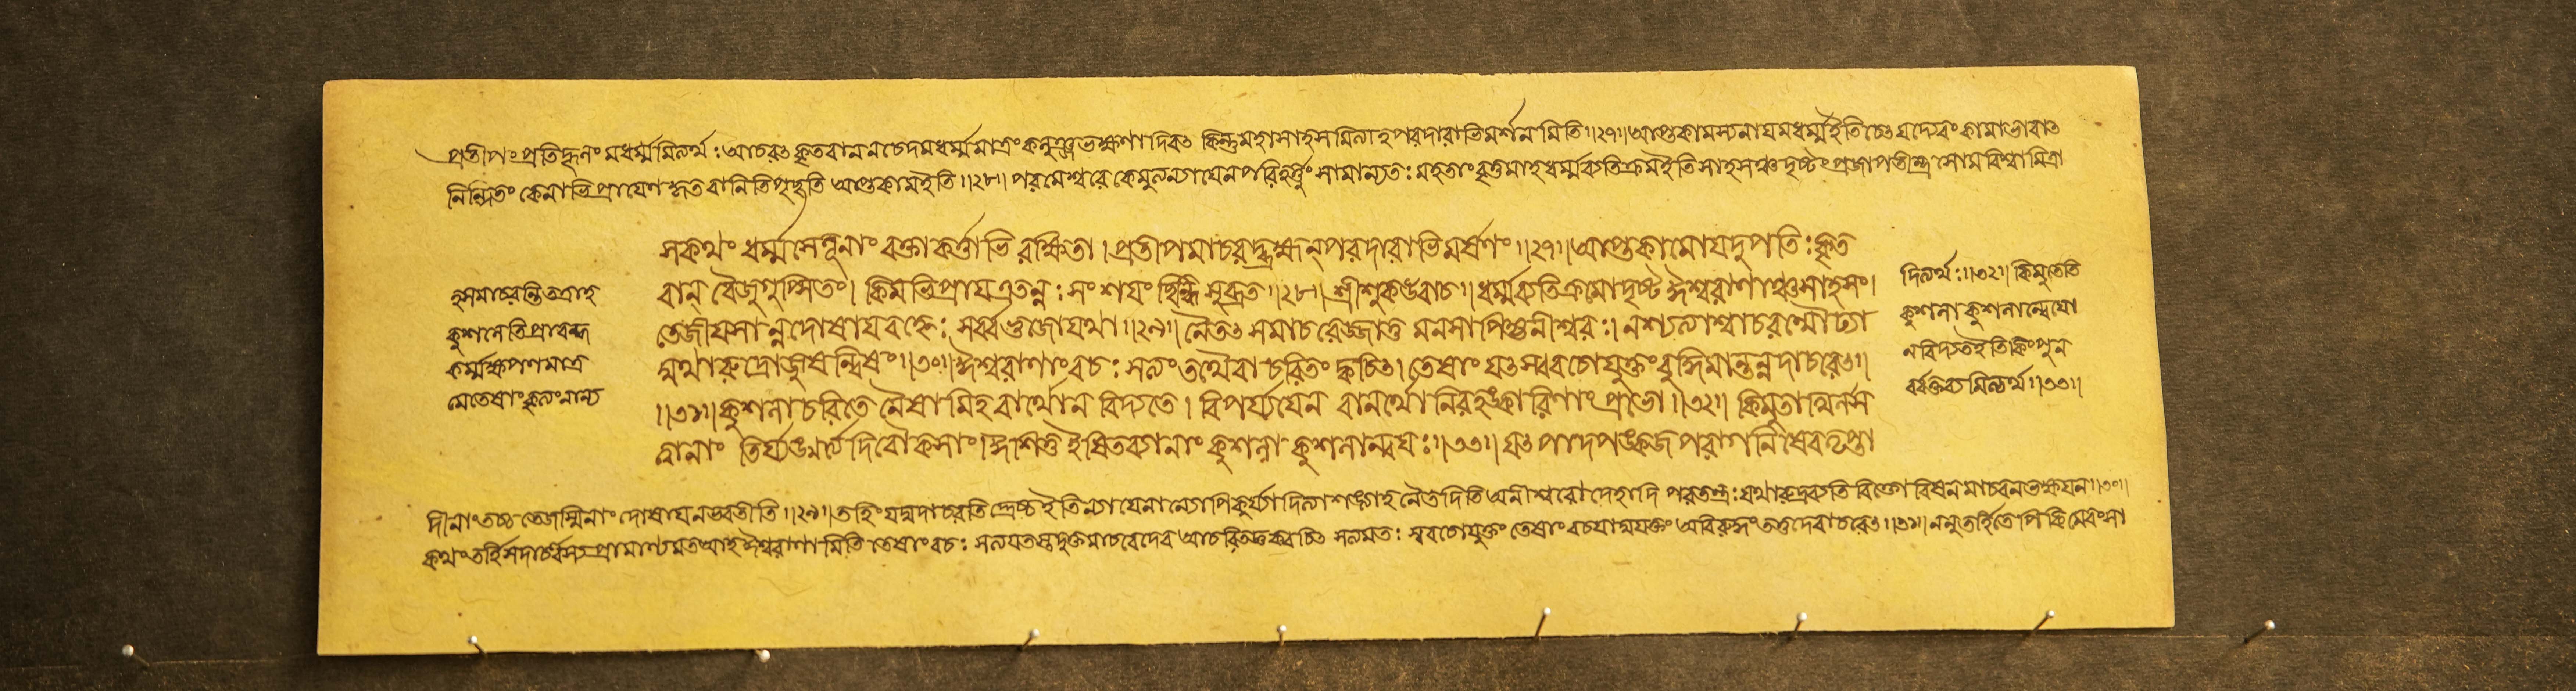 প্রতীপং প্রতিকূলং মধর্ম্মমিত্যর্থঃ আচরৎ কৃতবান্ নচেদমধর্ম্মমাত্রং কলঞ্জভক্ষণাদিবৎ কিন্তু মহাসাহসমিত্যাহ পরদারাভিমর্শনমিতি ॥২৭॥ আপ্তকামস্যনাযমধর্ম্মইতিচেৎ যদ্যেবং কামাভাবাৎ
নিন্দিতং কেনাভিপ্রাযেণ কৃতবানিতিপৃচ্ছতি আপ্তকামইতি ॥২৮॥ পরমেশ্বরে কৈমুত্যন্যাযেনপরিহর্ত্তুং সামান্যতঃ মহতাং বৃত্তমাহ ধর্ম্মব্যতিক্রমইতি সাহসঞ্চ দৃষ্টং প্রজাপতীন্দ্র সোমবিশ্বামিত্রা
সকথং ধর্ম্মসেতূনাং বক্তাকর্ত্তাভিরক্ষিতা। প্রতীপমাচরদ্ব্রহ্মন্ পরদারাভিমর্ষণং ॥২৭॥ আপ্তকামোযদুপতিঃ কৃত
বান্ বৈজুগুপ্সিতং। কিমভিপ্রায এতন্নঃ সংশযং ছিন্ধি সুব্রত ॥২৮॥ শ্রীশুকউবাচ॥ ধর্ম্মব্যতিক্রমোদৃষ্ট ঈশ্বরাণাঞ্চসাহসং।
তেজীযসান্নদোষাযবহ্নেঃ সর্ব্বভুজোযথা ॥২৯॥ নৈতৎ সমাচরেজ্জাতু মনসাপিহ্যনীশ্বরঃ। নশ্যত্যাশ্বাচরন্মৌঢ্যা
দ্যথারুদ্রোব্ধিজম্বিষং ॥৩০॥ ঈশ্বরাণাংবচঃ সত্যং তথৈবাচরিতং ক্বচিৎ। তেষাং যৎ স্ববচোযুক্তং বুদ্ধিমাংস্তন্নদাচরেৎ॥
॥৩১॥ কুশলাচরিতে নৈষামিহবার্থোন বিদ্যতে। বিপর্য্যযেন বানর্থোনিরহঙ্কারিণাং প্রভো ॥৩২॥ কিমুতাখিলস
ত্বানাং তির্য্যঙমর্ত্যদিবৌকসাং। ঈশিতুইশিতব্যানাং কুশলাকুশলান্বযঃ ॥৩৩॥ যৎপাদপঙ্কজপরাগনিষেবতৃপ্তা
হসমাচরন্তিতত্রাহ
কুশলেতিপ্রারব্ধ
কর্ম্মক্ষপণমাত্র
মেতেষাং কৃত্যংনান্য
দিত্যর্থঃ ॥৩২॥ কিমুতেতি
কুশলাকুশলান্বযো
নবিদ্যতইতিকিংপুন
র্বক্তব্যমিত্যর্থঃ ॥৩৩॥
দীনাং তচ্চ তেজস্বিনাং দোষাযনভবতীতি ॥২৯॥ তর্হি যদ্যদাচরতি শ্রেষ্ঠইতিন্যাযেনান্যোপিকুর্য্যাদিত্যাশঙ্ক্যাহ নৈতদিতি অনীশ্বরোদেহাদি পরতন্ত্রঃ যথারুদ্রব্যতিরিক্তো বিষমাচরন্ ভক্ষযন্ ॥৩০॥
কথং তর্হি সদাচারস্য প্রামাণ্যমতআহ ঈশ্বরাণামিতি তেষাং বচঃ সত্যমতস্তদুক্তমাচরেদেব আচরিতন্তুক্বচিৎ সত্যমতঃ স্ববচোযুক্তং তেষাং বচযাযদ্যুক্তং অবিরুদ্ধং তত্তদেবাচরেৎ ॥৩১॥ ননুতর্হিতেপিকিমেবংসা